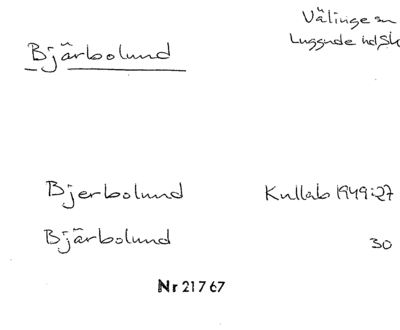 Välinge sn
Bjärbolund
Luggude hd Sk
Bjerbolund Kullab 1949:27
Bjärbolund 30
Nr 21767